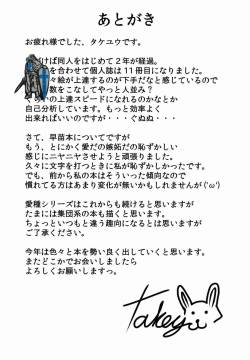 あとがき
お疲れ様でした、タケユウです。
けば同人をはじめて2年が経過。
を合わせて個人誌は11冊目になりました。
々絵が上達するのが下手だなと感じている
数をこなしてやっと人並み?
の上達スピードになれるのかなとか
自己分析しています。もっと効率よく
出来ればいいのですが・・・ぐぬぬ・・・
さて、早苗本についてですが
もう、とにかく愛だの嫉妬だの恥ずかしい
感じにニヤニヤさせようと頑張りました。
久々に文字を打つときに私が恥ずかしかったです。
でも、前から私の本はそういった傾向なので
慣れてる方はあまり変化が無いかもしれませんが('ω')
愛種シリーズはこれからも続けると思いますが
たまには集団系の本も描くと思います。
ちょっといつもと違う趣向になるとは思いますが
ご了承ください。
今年は色々と本を勢い良く出していくと思います。
またどこかでお会いしましたら
よろしくお願いしますっ。
takeyu